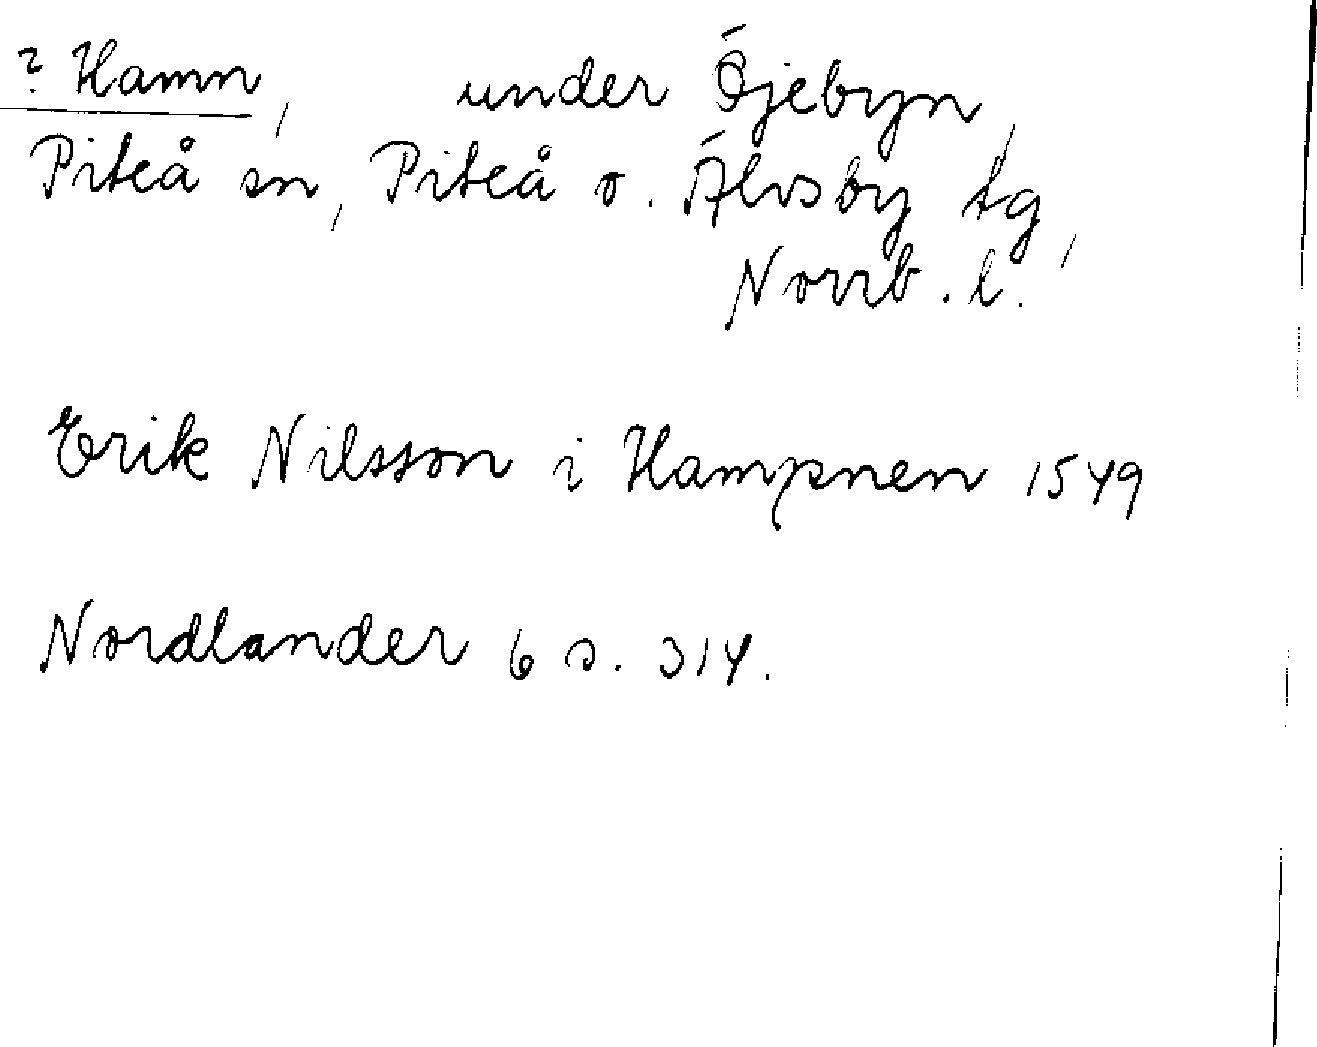 ? Hamn, under Öjebyn,
Piteå sn, Piteå o. Älvsby tg,
Norrb. l.
Erik Nilsson i Hampnen 1549
Nordlander 6 s. 314.